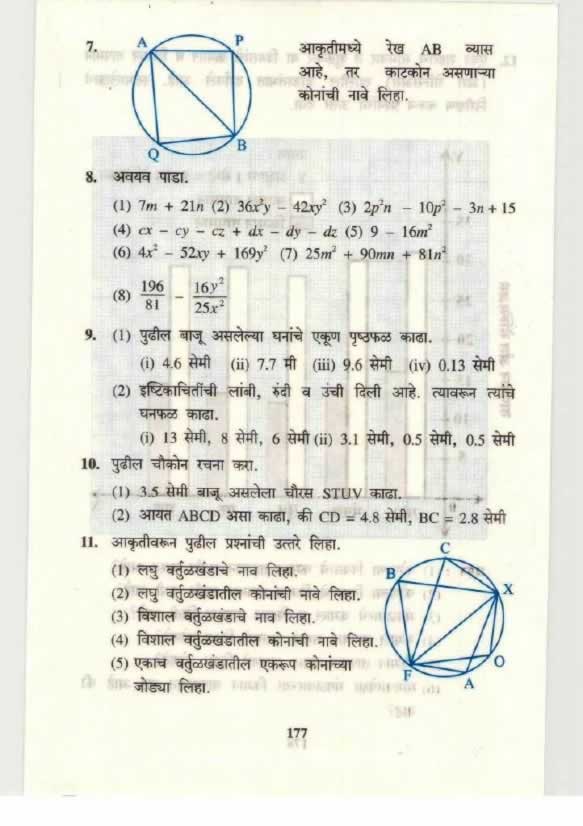 7.
A P
Q B
आकृतीमध्ये रेख AB व्यास
आहे, तर काटकोन असणाऱ्या
कोनांची नावे लिहा.
8. अवयव पाडा.
(1) 7m + 21n (2) 36x²y − 42xy² (3) 2p²n − 10p² − 3n + 15
(4) cx − cy − cz + dx − dy − dz (5) 9 − 16m²
(6) 4x² − 52xy + 169y² (7) 25m² + 90mn + 81n²
(8) 196/81 − 16y²/25x²
9. (1) पुढील बाजू असलेल्या घनांचे एकूण पृष्ठफळ काढा.
(i) 4.6 सेमी (ii) 7.7 मी (iii) 9.6 सेमी (iv) 0.13 सेमी
(2) इष्टिकाचितींची लांबी, रुंदी व उंची दिली आहे. त्यावरून त्यांचे
घनफळ काढा.
(i) 13 सेमी, 8 सेमी, 6 सेमी (ii) 3.1 सेमी, 0.5 सेमी, 0.5 सेमी
10. पुढील चौकोन रचना करा.
(1) 3.5 सेमी बाजू असलेला चौरस STUV काढा.
(2) आयत ABCD असा काढा, की CD = 4.8 सेमी, BC = 2.8 सेमी
11. आकृतीवरून पुढील प्रश्नांची उत्तरे लिहा.
(1) लघु वर्तुळखंडाचे नाव लिहा.
(2) लघु वर्तुळखंडातील कोनांची नावे लिहा.
(3) विशाल वर्तुळखंडाचे नाव लिहा.
(4) विशाल वर्तुळखंडातील कोनांची नावे लिहा.
(5) एकाच वर्तुळखंडातील एकरूप कोनांच्या
जोड्या लिहा.
C
B X
F O
A
177